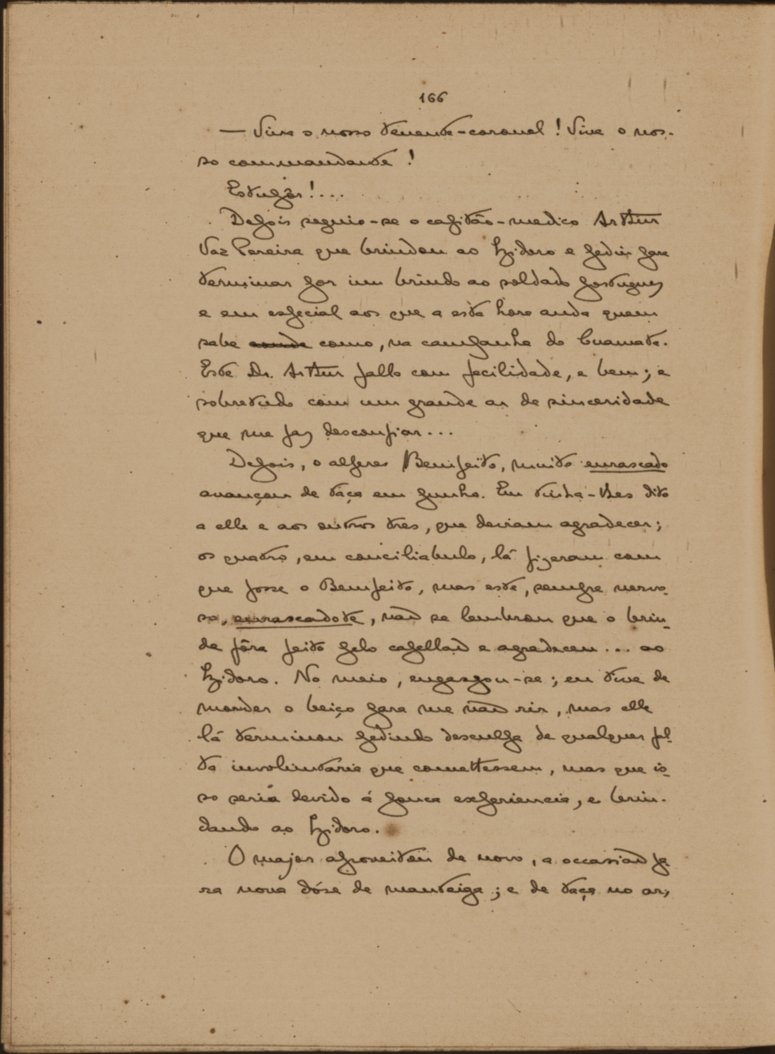 166
— Viva o nosso tenente-coronel! Viva o nos-
so commandante!
Estugar!...
Depois seguio-se o capitão-medico Arthur
Vaz Pereira que brindou ao Izidoro e pediu para
terminar por um brinde ao soldado portuguez
e em especial aos que a esta hora anda quem
sabe aonde como, na campanha do Cuamato.
Este Dr. Arthur falla com facilidade, e bem; e
sobretudo com um grande ar de sinceridade
que me faz desconfiar...
Depois, o alferes Bemfeito, muito enrascado
avançou de taça em punho. Eu tinha-lhes dito
a elle e aos outros tres, que deviam agradecer;
os quatro, em conciliabulo, lá fizeram com
que fosse o Bemfeito, mas este, sempre nervo-
so, enrascadote, não se lembrou que o brin-
de fôra feito pelo capellão e agradeceu... ao
Izidoro. No meio, engasgou-se; eu tive de
morder o beiço para me não rir, mas elle
lá terminou pedindo desculpa de qualquer fal-
ta involuntaria que comettessem, mas que is-
so seria devido á pouca experiencia, e brin-
dando ao Izidoro.
O major aproveitou de novo, a occasião pa
ra nova dóse de manteiga; e de taça no ar,